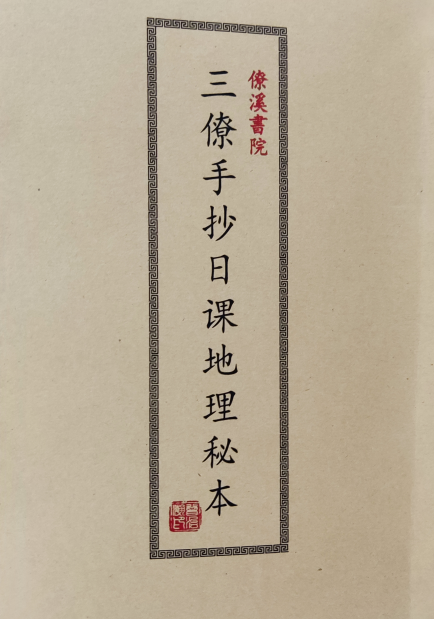 僚溪書院
三僚手抄日课地理秘本